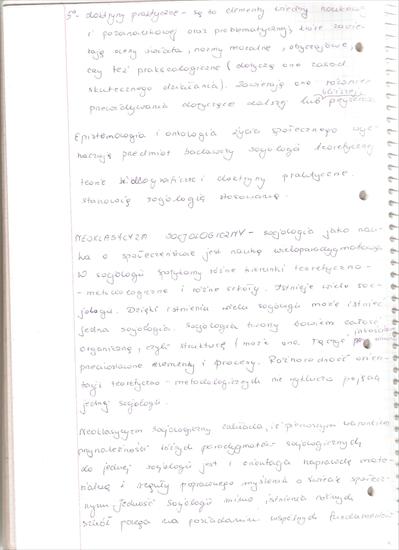 5° - doktryny praktyczne - są to elementy wiedzy naukowej
i pozanaukowej oraz problematycznej, które zawie-
rają oceny świata, normy moralne, obyczajowe,
czy też prakseologiczne (dotyczą one zasad
skutecznego działania). Zawierają one również
przewidywania dotyczące dalszej lub bliższej przyszłości
Epistemologia i ontologia życia społecznego wy-
znaczają przedmiot badawczy socjologii teoretycznej
teorie i doktryny praktyczne
stanowią socjologię stosowaną.
NEOKLASYCYZM SOCJOLOGICZNY - socjologia jako nau-
ka o społeczeństwie jest nauką wieloparadygmatową
W socjologii spotykamy różne kierunki teoretyczno-
-metodologiczne i różne szkoły. Istnieje wiele soc-
jologii. Dzięki istnieniu wielu socjologii może istnieć
jedna socjologia. Socjologia tworzy bowiem całość
organiczną, czyli strukturę (może ona łączyć
przeciwstawne elementy i procesy. Różnorodność orien-
tacji teoretyczno-metodologicznych nie wyklucza pojęcia
jednej socjologii.
Neoklasycyzm socjologiczny zakłada, iż pierwszym warunkiem
przynależności różnych paradygmatów socjologicznych
do jednej socjologii jest orientacja naprawdę mate-
rialną i reguły poprawnego myślenia o świecie społecz-
nym. Jedność socjologii mimo istnienia różnych
szkół polega na posiadaniu wspólnych fundamentów